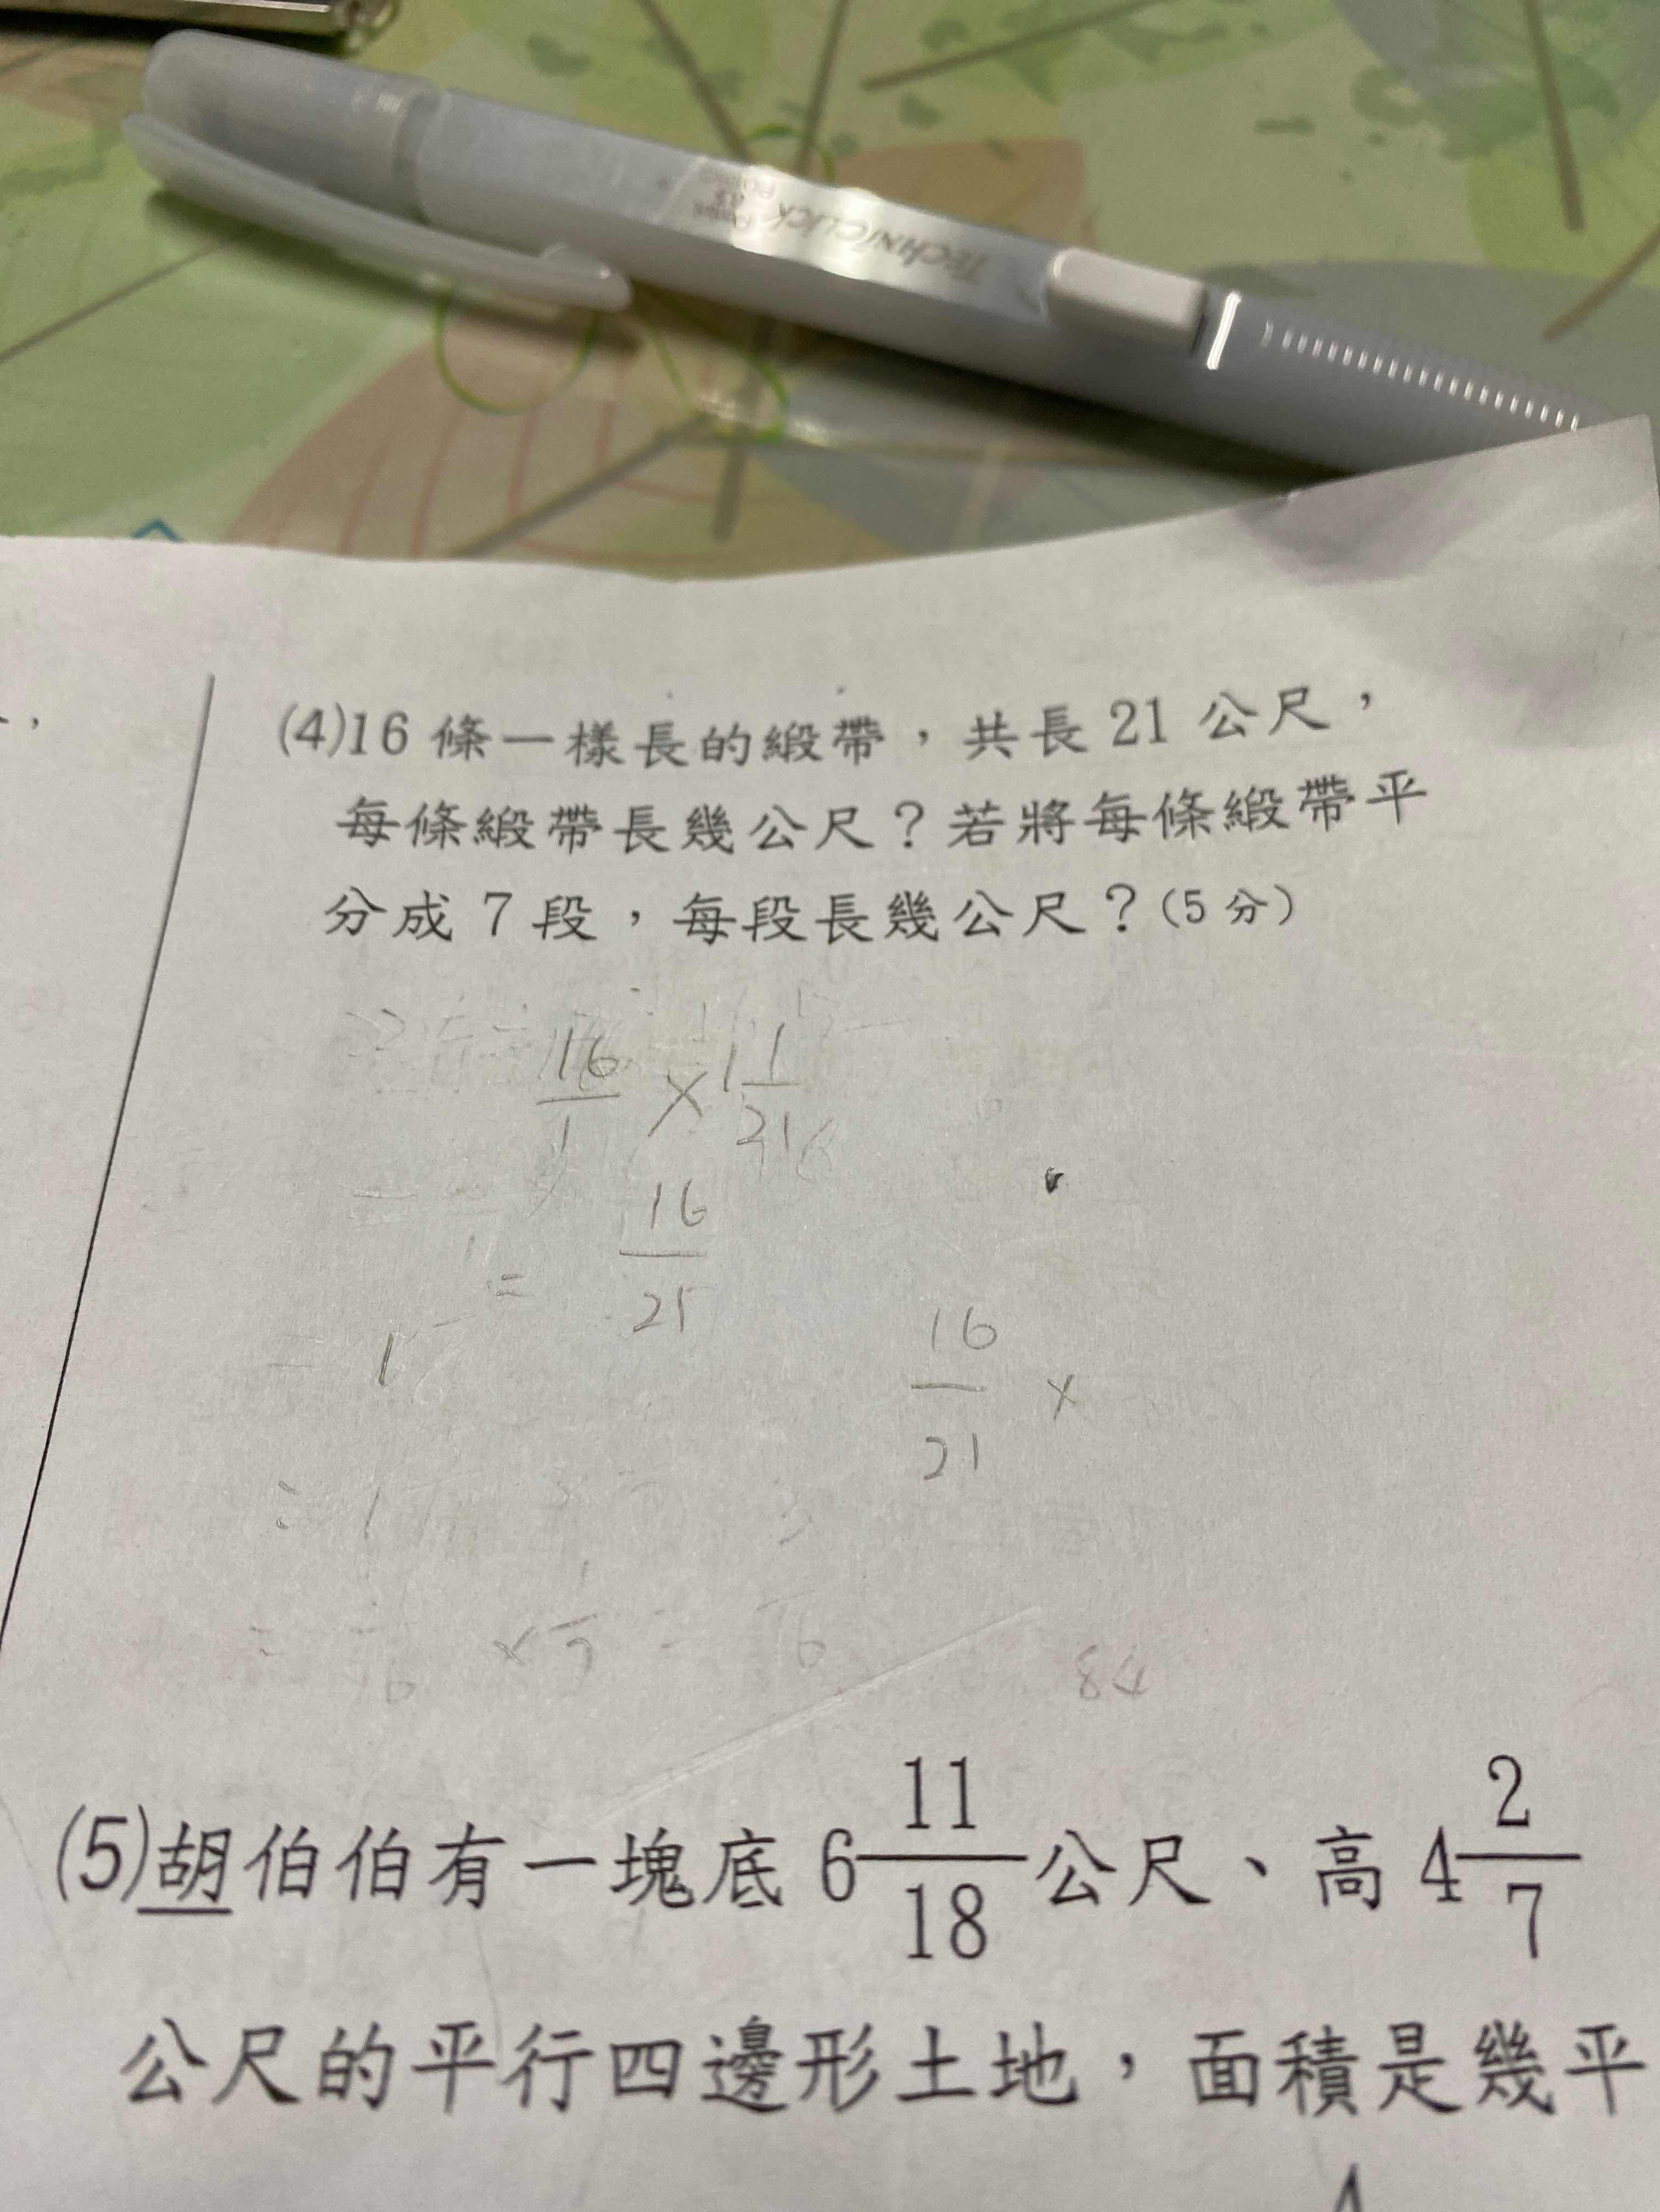 TECHNICLICK
(4)16 條一樣長的緞帶，共長 21 公尺，
每條緞帶長幾公尺？若將每條緞帶平
分成 7 段，每段長幾公尺？(5 分)
16/1 × 1/21
= 16/25
16/21 ×
(5)胡伯伯有一塊底 6 11/18 公尺、高 4 2/7
公尺的平行四邊形土地，面積是幾平